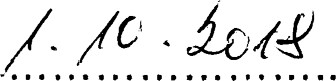 1. 10. 2018